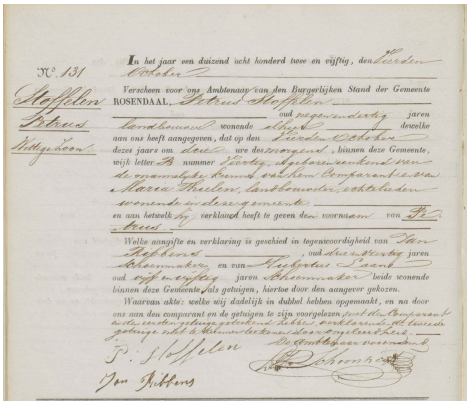 In het jaar een duizend acht honderd twee en vijftig, den Vierden
October
N°. 131
Verscheen voor ons Ambtenaar van den Burgerlijken Stand der Gemeente
Stoffelen
Petrus
ROSENDAAL, Petrus Stoffelen
oud negenendertig jaren
landbouwer wonende alhier dewelke
aan ons heeft aangegeven, dat op den Vierden October
dezes jaars om drie ure des morgens, binnen deze Gemeente,
wijk letter B nummer Veertig, is geboren een kind van
de mannelijke kunne van hem Comparant en van
Maria Theelen, landbouwers, echtelieden
wonende in deze gemeente
en aan hetwelk hij verklaard heeft te geven den voornaam van Pe
trus
Welke aangifte en verklaring is geschied in tegenwoordigheid van Jan
Ribbens, oud jaren
Schoenmaker en van Hubertus
oud vijf en vijftig jaren Schoenmaker beide wonende
binnen deze Gemeente, als getuigen, hiertoe door den aangever gekozen.
Waarvan akte: welke wij dadelijk in dubbel hebben opgemaakt, en na door
ons aan den comparant en de getuigen te zijn voorgelezen, met den Comparant
en den eersten getuige geteekend hebben, verklarende de tweede
getuige niet te kunnen teekenen door ongeleerdheid
De Ambtenaar voornoemd
P: Stoffelen
Jan Ribbens